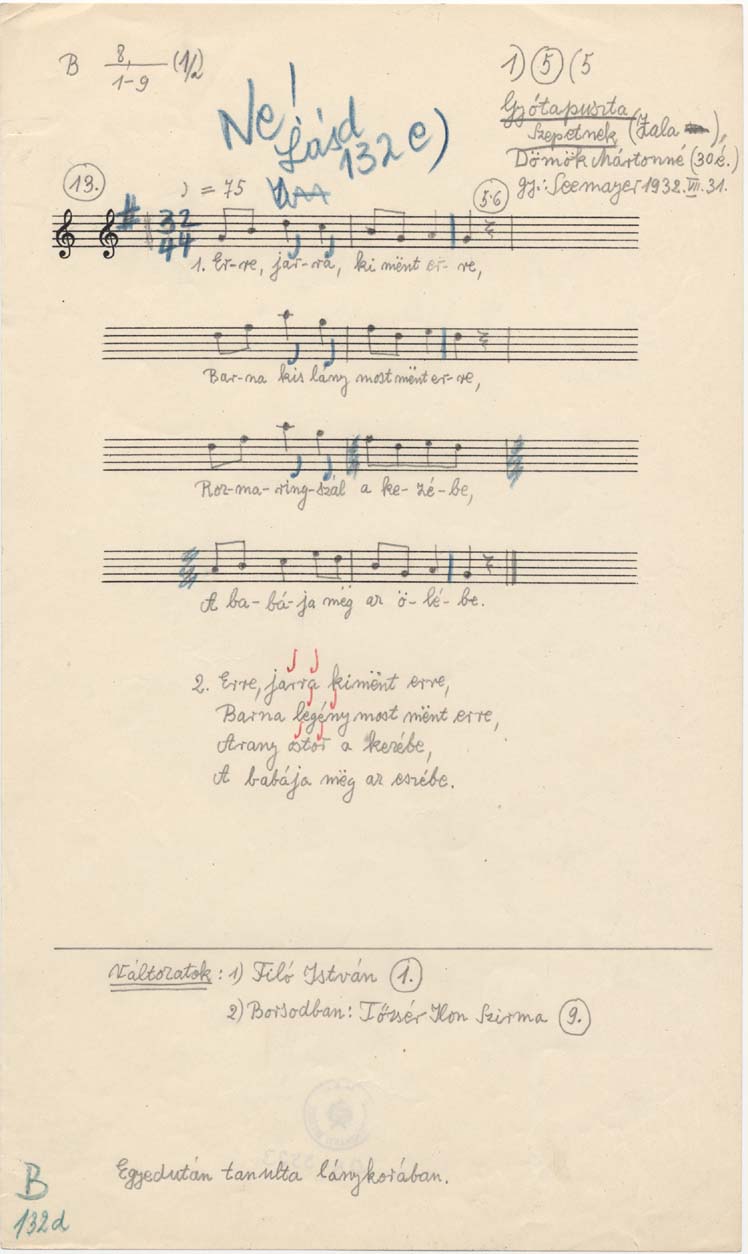 B 8, (1/2)
1-9
1) 5 (5
Gyótapuszta
Szepetnek (Zala),
Dömök Mártonné (30 é.)
gy.: Seemayer 1932. VII. 31.
Ne!
Lásd
132 e)
13.
♪ = 75
5-6
# 32
44
1. Er-re, jar-ra, ki mënt er-re,
Bar-na kis lány most mënt er-re,
Roz-ma-ring-szál a ke-zé-be,
A ba-bá-ja mëg az ö-lé-be.
2. Erre, jarra kimënt erre,
Barna legény most mënt erre,
Arany ostor a kezébe,
A babája mëg az eszébe.
Változatok: 1) Filó István 1.
2) Borsodban: Tőzsér Ilon Szirma 9.
Egyedután tanulta lánykorában.
B
132d